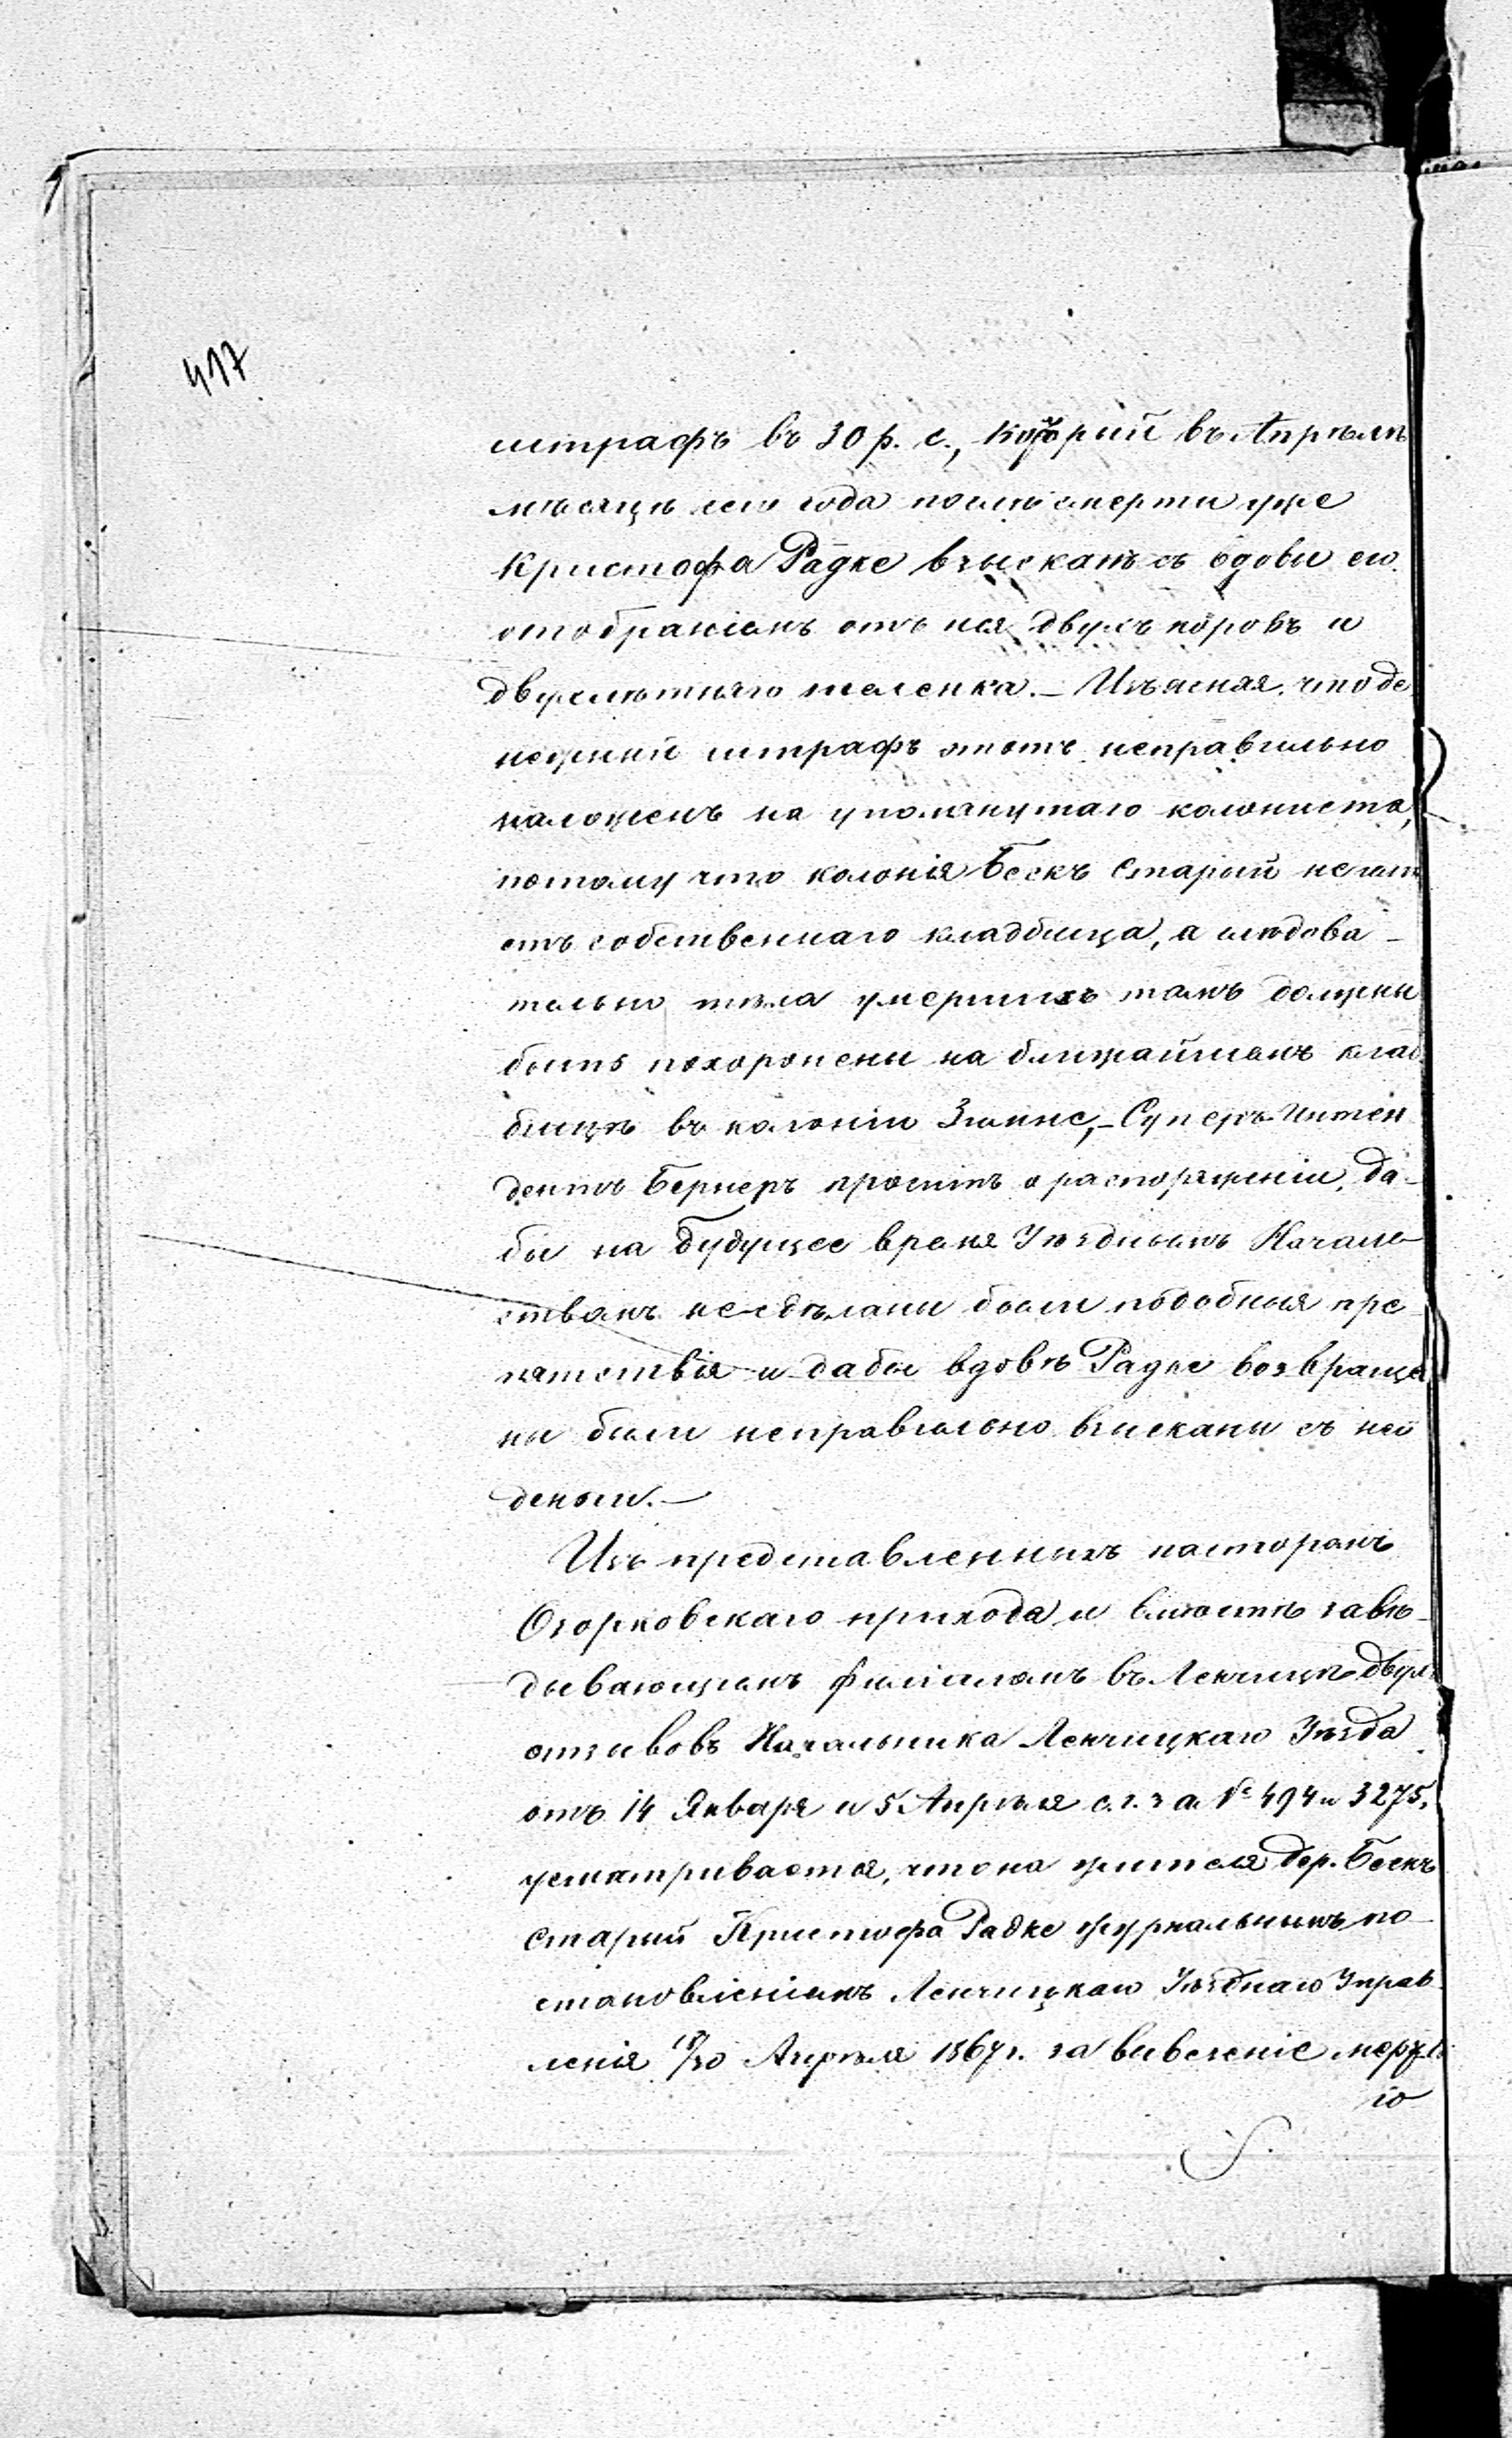 417
штрафъ въ 30 р. с., который въ Апрѣлѣ
мѣсяцѣ сего года послѣ смерти уже
Кристофа Радке взысканъ съ вдовы его
отобраніемъ отъ нея двухъ коровъ и
двухлѣтняго теленка. — Изъясняя, что де
нежный штрафъ этотъ неправильно
наложенъ на упомянутаго колониста,
потому что колонія Бескъ Старый неимѣ
етъ собственнаго кладбища, а слѣдова-
тельно тѣла умершихъ тамъ должны
быть похоронены на ближайшемъ клад
бищѣ въ колоніи, — Суперъ-Интен
дентъ Бернеръ проситъ о распоряженіи, да-
бы на будущее время Уѣзднымъ Началь-
ствомъ несдѣланы были подобныя пре-
пятствія и дабы вдовѣ Радке возвраще
ны были неправильно взысканы съ ней
деньги. —
Изъ представленныхъ пасторомъ
Озорковскаго прихода и вмѣстѣ завѣ-
дывающимъ филіаломъ въ Ленчицѣ двухъ
отзывовъ Начальника Ленчицкаго Уѣзда
отъ 14 Января и 5 Апрѣля с. г. за № 494 и 3275,
усматривается, что на жителя дер. Бескъ
Старый Кристофа Радке журнальнымъ по-
становленіемъ Ленчицкаго Уѣзднаго Управ
ленія 18/30 Апрѣля 1867 г. за вывезеніе